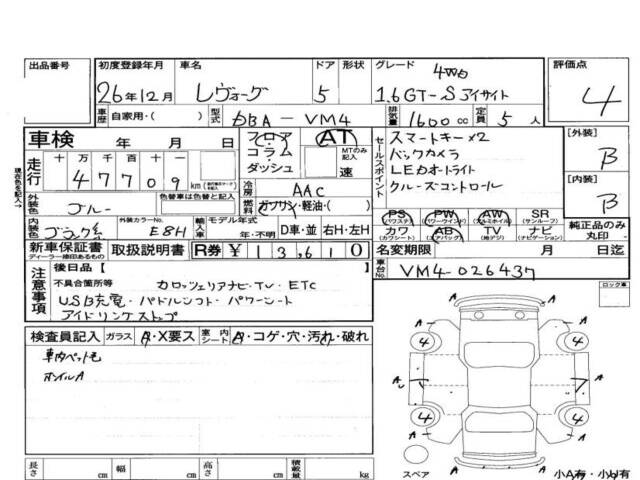 出品番号
初度登録年月 26年12月
車名 レヴォーグ
ドア 5
形状
グレード 4WD 1.6GT-S アイサイト
評価点 4
車歴 自家用・( )
型式 DBA-VM4
排気量 1600cc
定員 5人
車検 年 月 日
フロア コラム ダッシュ
AT MTのみ記入 速
セールスポイント
スマートキー×2
バックカメラ
LEDオートライト
クルーズコントロール
[外装] B
[内装] B
現在色を記入→
走行 十 万 千 百 十 一
47709 km
冷房 AAC
外装色 ブルー
色替車は色替と記入
燃料 ガソリン・軽油・( )
PS (パワステ) PW (パワーウインド) AW (アルミホイル) SR (サンルーフ)
カワ (カワシート) AB (エアバック) TV (地デジ) ナビ (ナビゲーション)
純正品のみ丸印
内装色 ブラック系
外装カラーNo. E8H
輸入車 モデル年式 年・不明
D車・並 右H・左H
新車保証書 ディーラー捺印あるもの
取扱説明書
R券 ¥13,610
名変期限 月 日迄
注意事項
後日品【 】
不具合箇所等 カロッツェリアナビ・TV・ETC
USB充電・パドルシフト・パワーシート
アイドリングストップ
車台No. VM4-026437
検査員記入 ガラス A・X要ス 室内シート A・コゲ・穴・汚れ・破れ
車内ペット毛
ホイルA
ロック車
A A
4 4
A A
4 4
A A
A
スペア
小A有・小U有
長さ cm 幅 cm 高さ cm 積載量 kg